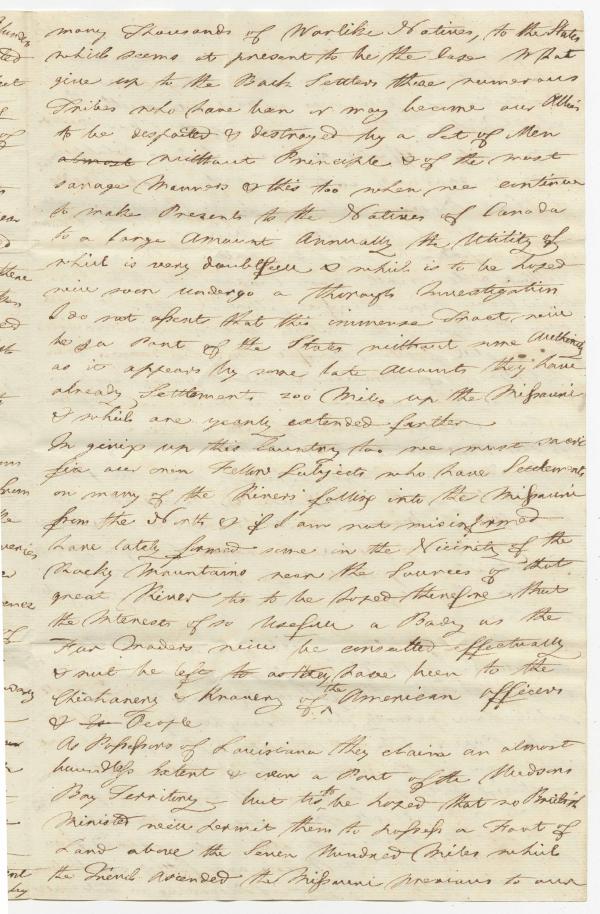 many Thousands of Warlike Natives, to the States
which seems at present to be the Case What
give up to the Back Settlers these numerous
Tribes who have been or may become our Allies
to be despoiled & destroyed by a Set of Men
almost without Principle & of the most
savage Manners & this too when we continue
to make Presents to the Natives of Canada
to a large Amount Annually the Utility of
which is very doubtfull & which is to be hoped
will soon undergo a thorough Investigation
I do not assert that this immense Tract will
be a Part of the States without some Authority
as it appears by some late Accounts they have
already Settlements 200 Miles up the Missouri
& which are yearly extended farther
In giving up this Country too we must sacri
fice our own Fellow Subjects who have Settlements
on many of the Rivers falling into the Missouri
from the North & if I am not misinformed
have lately formed some in the Vicinity of the
Rocky Mountains near the Sources of that
great River tis to be hoped therefore that
the Interests of so Usefull a Body as the
Fur Traders will be consulted effectually
& not be left to as they have been to the
Chichanery & Knavery of the American officers
& People
As Possessors of Louisiana they claim an almost
boundless Extent & even a Part of the Hudsons
Bay Territory – but tis to be hoped that no British
Minister will permit them to possess a Foot of
Land above the Seven Hundred Miles which
the French ascended the Missouri previous to our